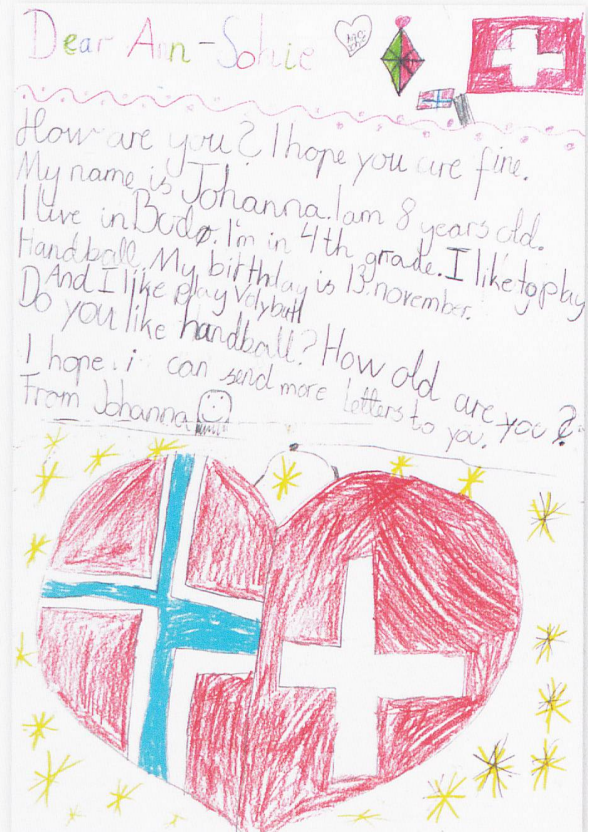 Dear Ann-Sohie
How are you? I hope you are fine.
My name is Johanna. I am 8 years old.
I live in Bodø. I'm in 4th grade. I like to play
Handball. My birthday is 13. november.
And I lijke play Volyball
Do you like handball? How old are you?
I hope i can send more letters to you.
From Johanna